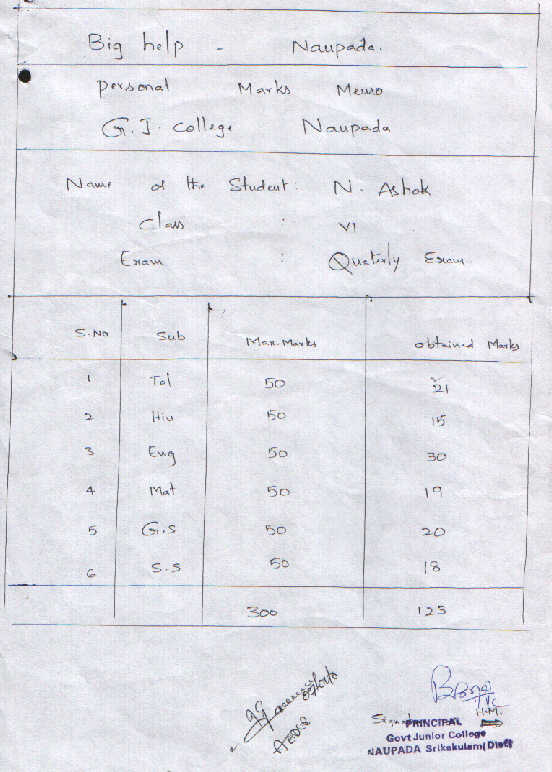 Big help - Naupada.
Personal Marks Memo
G.J. College Naupada
Name of the Student : N. Ashok
Class : VI
Exam : Quaterly Exam
S.No Sub Max.Marks obtained Marks
1 Tel 50 21
2 Hin 50 15
3 Eng 50 30
4 Mat 50 19
5 G.S 50 20
6 S.S 50 18
300 125
H.M.
PRINCIPAL
Govt Junior College
NAUPADA Srikakulam(Dist)